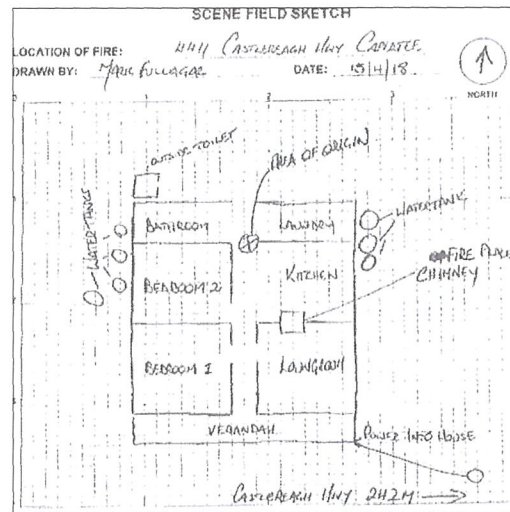 SCENE FIELD SKETCH
LOCATION OF FIRE: 4411 CASTLEREAGH HWY CAPERTEE
DRAWN BY: MARK FULLAGAR DATE: 15/4/18
NORTH
OUTSIDE TOILET
AREA OF ORIGIN
WATER TANKS
BATHROOM
LAUNDRY
WATER TANKS
BEDROOM 2
KITCHEN
FIRE PLACE
CHIMNEY
BEDROOM 1
VERANDAH
POWER INTO HOUSE
CASTLEREAGH HWY 242M